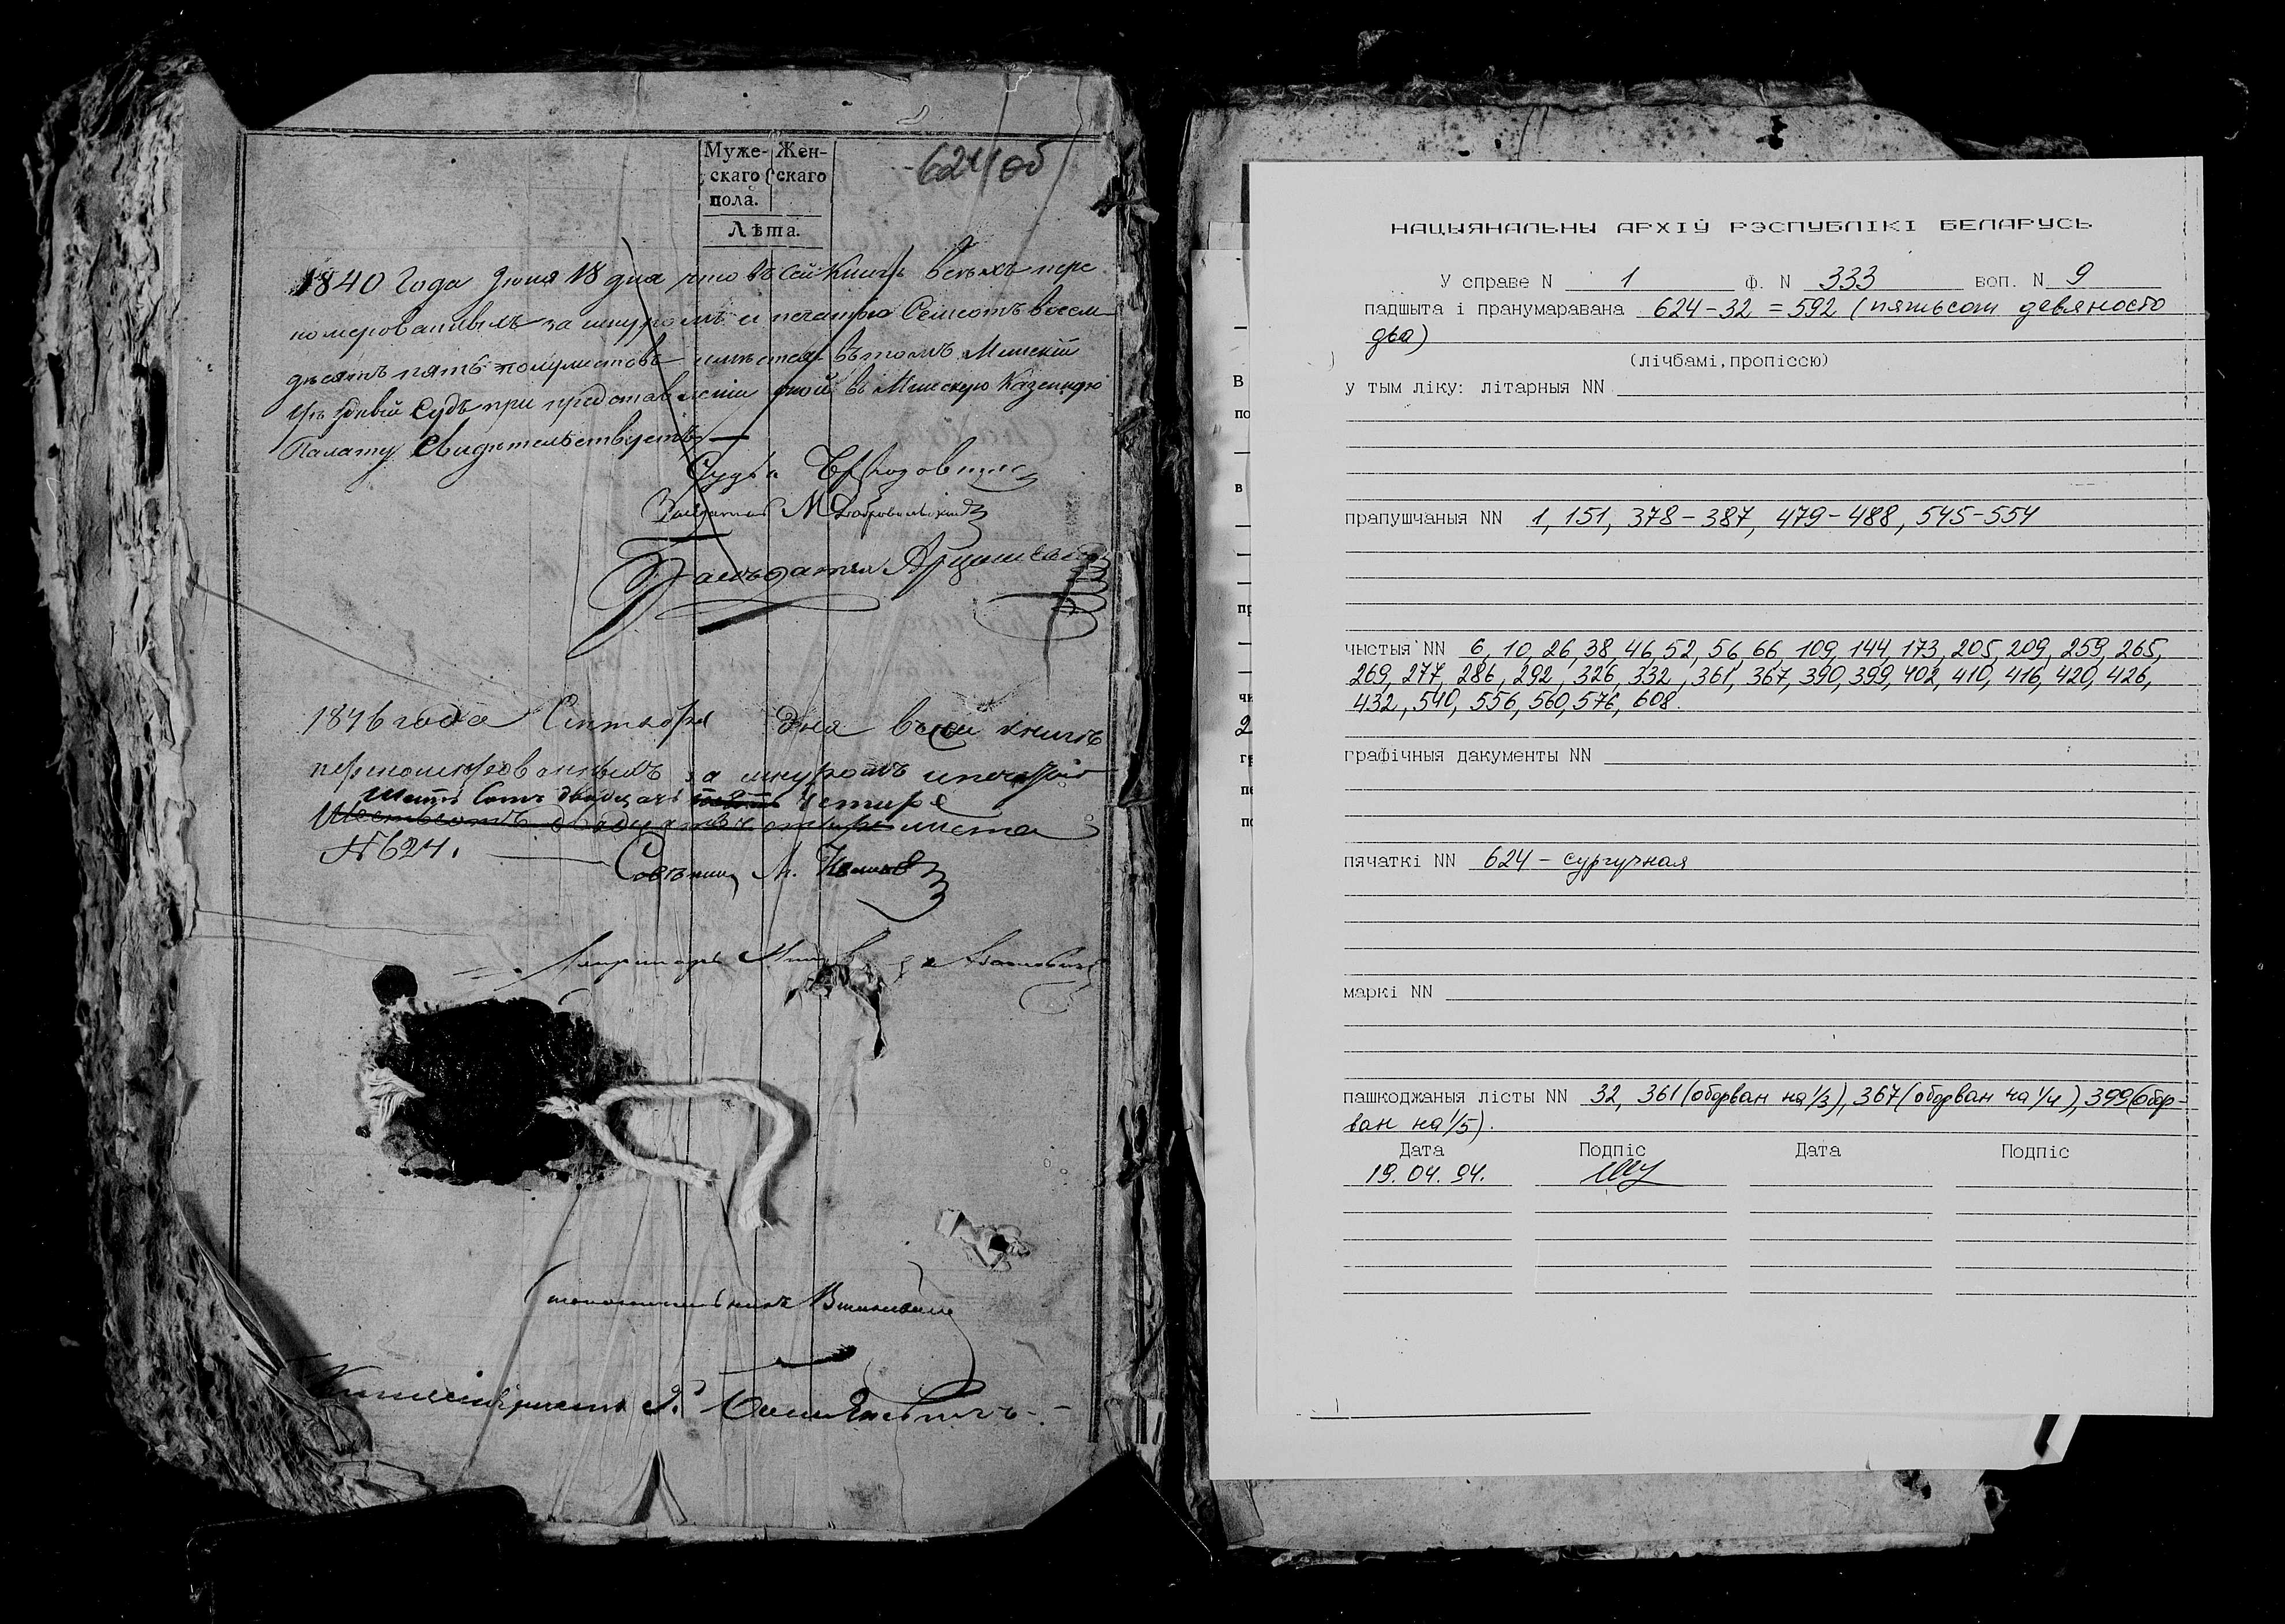 624/об
Муже- Жен-
скаго скаго
пола.
Лѣта.
1840 Года Іюня 18 дня что въ сей Книгѣ всѣхъ пере
номерованныхъ за шнуромъ и печатью Семсотъ восем
десятъ пять полулистовъ имѣется въ томъ Минскій
Уѣздный Судъ при представленіи оной въ Минскую Казенную
Палату Свидѣтельствуетъ
Судья
Засѣдатель М
Засѣдатель
1846 года Сентября дня въ сей книгѣ
перенумерованныхъ за шнуромъ и печатью
шесть сотъ двадцать четыре
Шестьсотъ двадцать четыре листа
№ 624.
Совѣтникъ
НАЦЫЯНАЛЬНЫ АРХІЎ РЭСПУБЛІКІ БЕЛАРУСЬ
У справе N 1 ф. N 333 воп. N 9
падшыта і пранумаравана 624-32 = 592 (пятьсот девяносто
два)
(лічбамі, пропіссю)
у тым ліку: літарныя NN
прапушчаныя NN 1, 151, 378-387, 479-488, 545-554
чыстыя NN 6, 10, 26, 38, 46, 52, 56, 66, 109, 144, 173, 205, 209, 259, 265,
269, 277, 286, 292, 326, 332, 361, 367, 390, 399, 402, 410, 416, 420, 426,
432, 540, 556, 560, 576, 608.
графічныя дакументы NN
пячаткі NN 624 - сургучная
маркі NN
пашкоджаныя лісты NN 32, 361 (оборван на 1/3), 367 (оборван на 1/4), 399 (обор-
ван на 1/5).
Дата Подпіс Дата Подпіс
19.04.94.